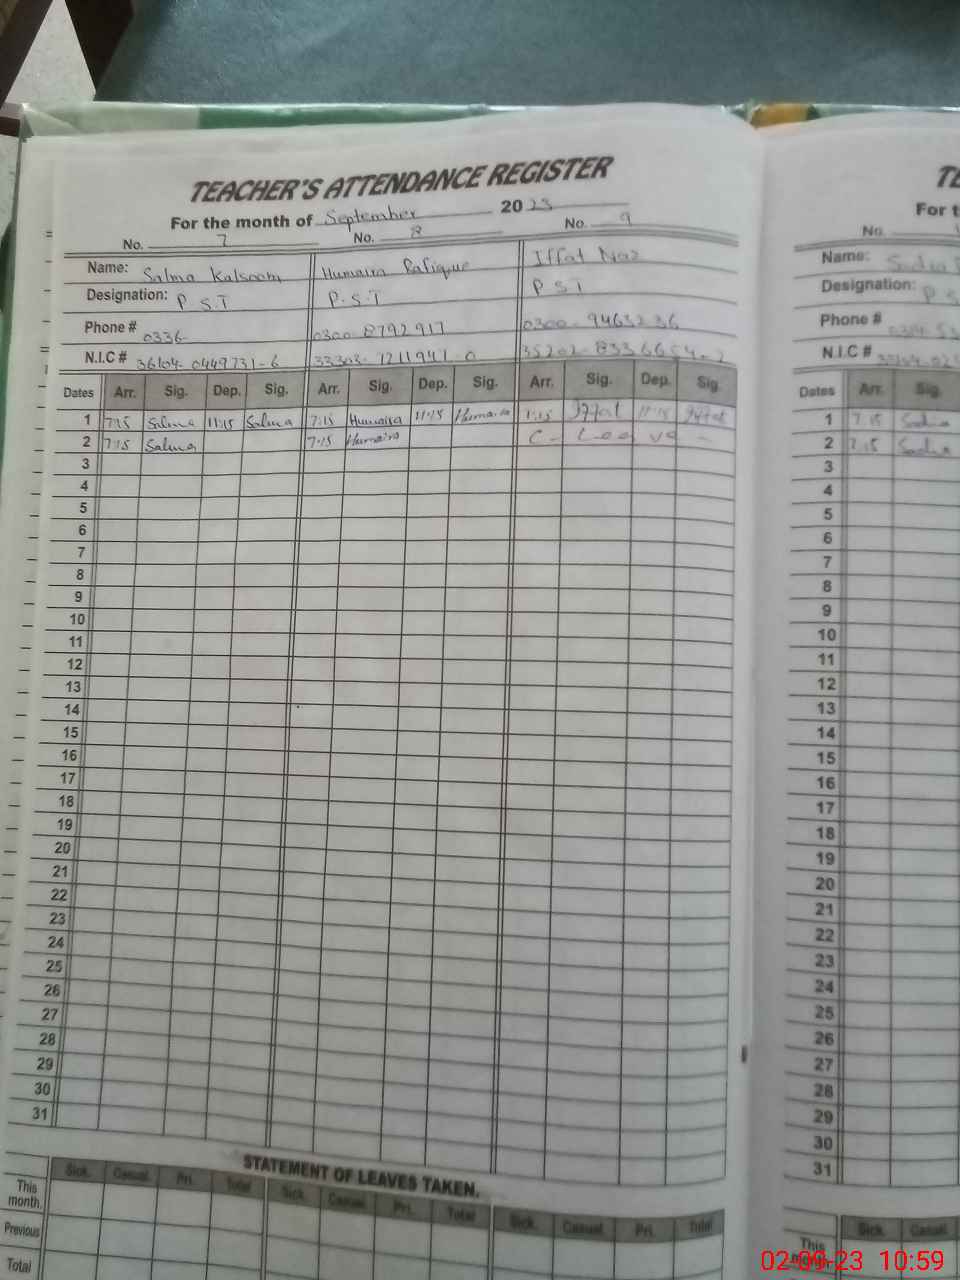 TEACHER'S ATTENDANCE REGISTER
For the month of September 2023
No. 7 No. 8 No. 9
Name: Salma Kalsoom Humaira Rafique Iffat Naz
Designation: P.S.T P.S.T P S T
Phone # 0336- 0300-8792917 0300-9463236
N.I.C # 36104-0449731-6 33303-1211941-0 35202-8336654-2
Dates Arr. Sig. Dep. Sig. Arr. Sig. Dep. Sig. Arr. Sig. Dep. Sig.
1 7:15 Salma 11:15 Salma 7:15 Humaira 11:15 Humaira 7:15 Iffat 11:15 Iffat
2 7:15 Salma 7:15 Humaira C- Leave -
3
4
5
6
7
8
9
10
11
12
13
14
15
16
17
18
19
20
21
22
23
24
25
26
27
28
29
30
31
STATEMENT OF LEAVES TAKEN.
Sick. Casual. Pri. Total Sick. Casual. Pri. Total Sick. Casual. Pri. Total
This month.
Previous
Total
For t
No.
Name:
Designation: P.S
Phone #
N.I.C #
Dates Arr. Sig.
1 7:15
2 7:15
3
4
5
6
7
8
9
10
11
12
13
14
15
16
17
18
19
20
21
22
23
24
25
26
27
28
29
30
31
Sick. Casual
This
02-09-23 10:59